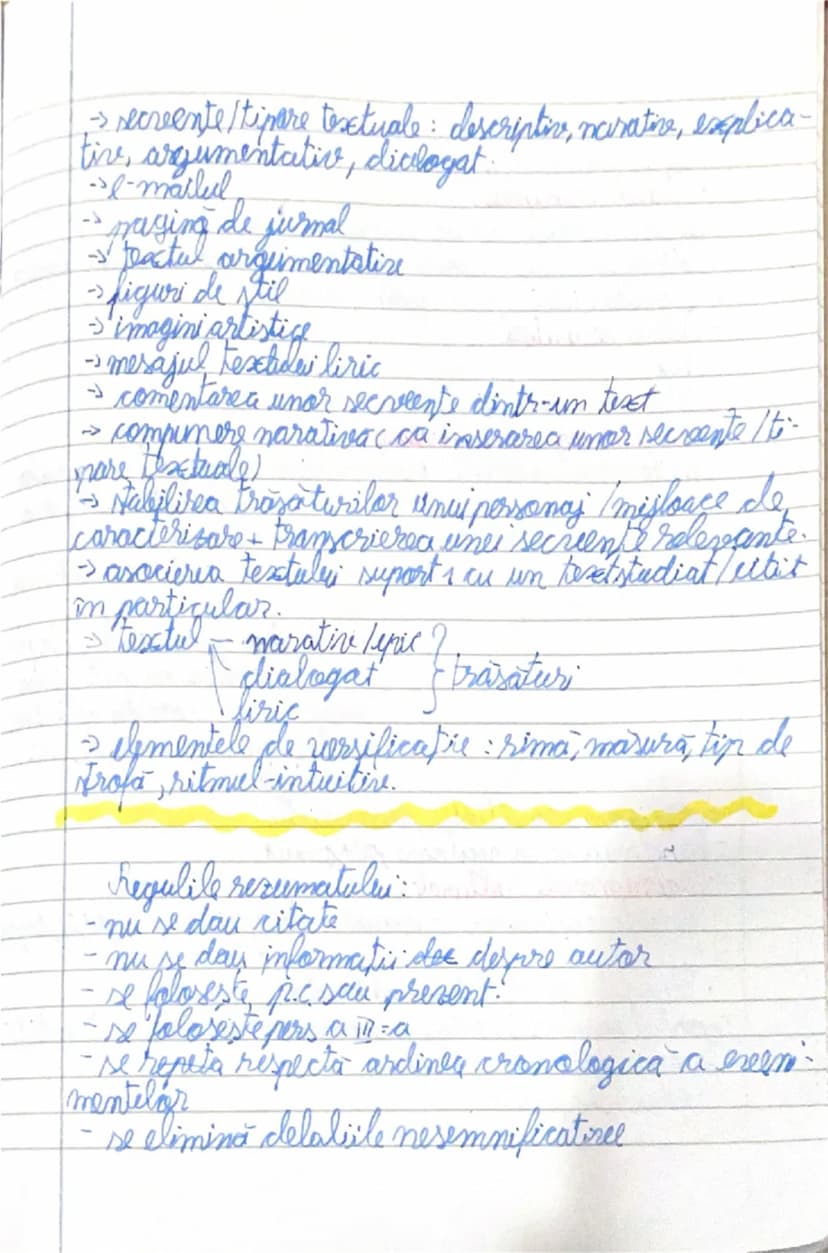 → secvențe/tipare textuale: descriptiv, narativ, explica-
tiv, argumentativ, dialogat.
→ e-mailul
→ pagină de jurnal
→ textul argumentativ
→ figuri de stil
→ imagini artistice
→ mesajul textului liric
→ comentarea unor secvențe dintr-un text
→ compunere narativă (cu inserarea unor secvențe/ti-
pare textuale)
→ stabilirea trăsăturilor unui personaj/mijloace de
caracterizare + transcrierea unei secvențe relevante.
→ asocierea textului suport 1 cu un text studiat/citit
în particular.
→ textul - narativ/epic
dialogat } trăsături
liric
→ elementele de versificație: rimă, măsură, tip de
strofă, ritmul-intuitiv.
Regulile rezumatului:
- nu se dau citate
- nu se dau informații despre autor
- se folosește p.c. sau prezent.
- se folosește pers a III-a
- se repetă respectă ordinea cronologică a eveni-
mentelor
- se elimină detaliile nesemnificative